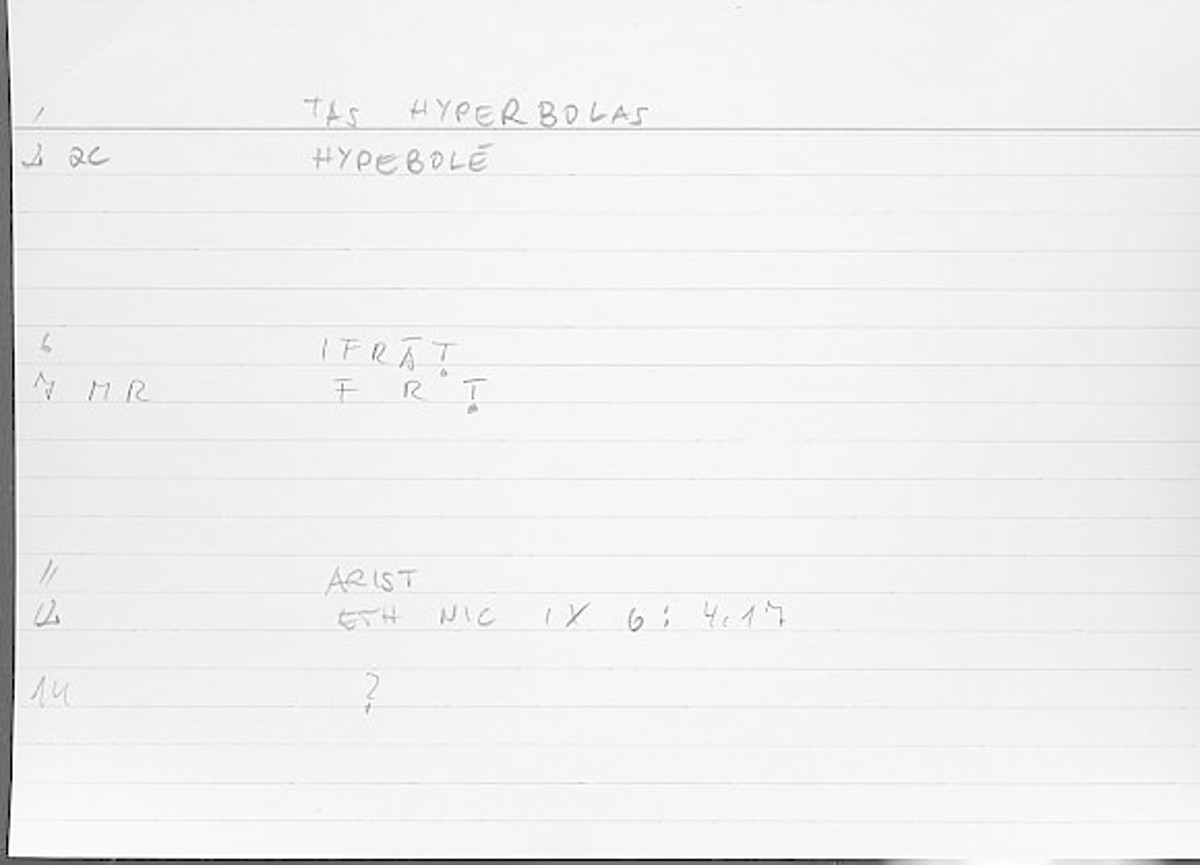 1 TAS HYPERBOLAS
2 2C HYPEBOLĒ
6 IFRĀṬ
7 MR F R Ṭ
11 ARIST
12 ETH NIC IX 6: 4.17
14 ?